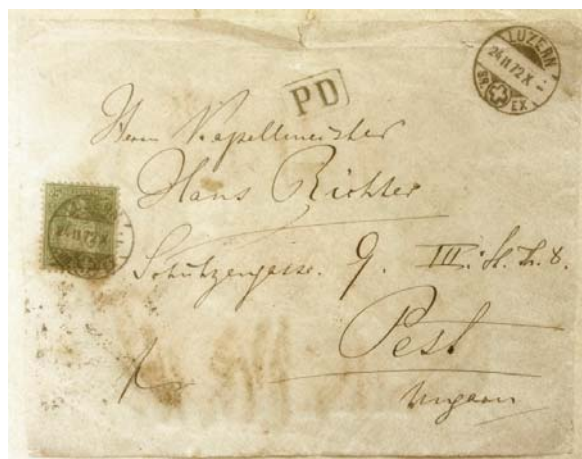 LUZERN
24 II 72 X
BR. EX.
PD
Herrn Kapellmeister
Hans Richter
24 II 72 X
Schützengasse. 9. III. St. Th. 8.
Pest
Ungarn